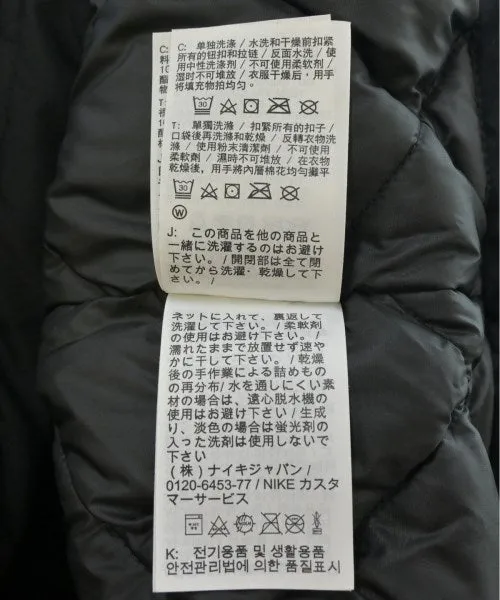 C: 单独洗涤 / 水洗和干燥前扣紧
所有的钮扣和拉链 / 反面水洗 / 使
用中性洗涤剂 / 不可使用柔软剂 /
湿时不可堆放 / 衣服干燥后，用手
将填充物拍均匀。
30
T: 單獨洗滌 / 扣緊所有的扣子 /
口袋後再洗滌和乾燥 / 反轉衣物洗
滌 / 使用粉末清潔劑 / 不可使用
柔軟劑 / 濕時不可堆放 / 在衣物
乾燥後，用手將內層棉花均勻攤平
30
W
J: この商品を他の商品と
一緒に洗濯するのはお避け
下さい。/ 開閉部は全て閉
めてから洗濯・乾燥して下
さい。/
ネットに入れて、裏返して
洗濯して下さい。/ 柔軟剤
の使用はお避け下さい。/
濡れたままで放置せず速や
かに干して下さい。/ 乾燥
後の手作業による詰めもの
の再分布/ 水を通しにくい素
材の場合は、遠心脱水機の
使用はお避け下さい/ 生成
り、淡色の場合は蛍光剤の
入った洗剤は使用しないで
下さい
(株) ナイキジャパン /
0120-6453-77 / NIKE カスタ
マーサービス
K: 전기용품 및 생활용품
안전관리법에 의한 품질표시